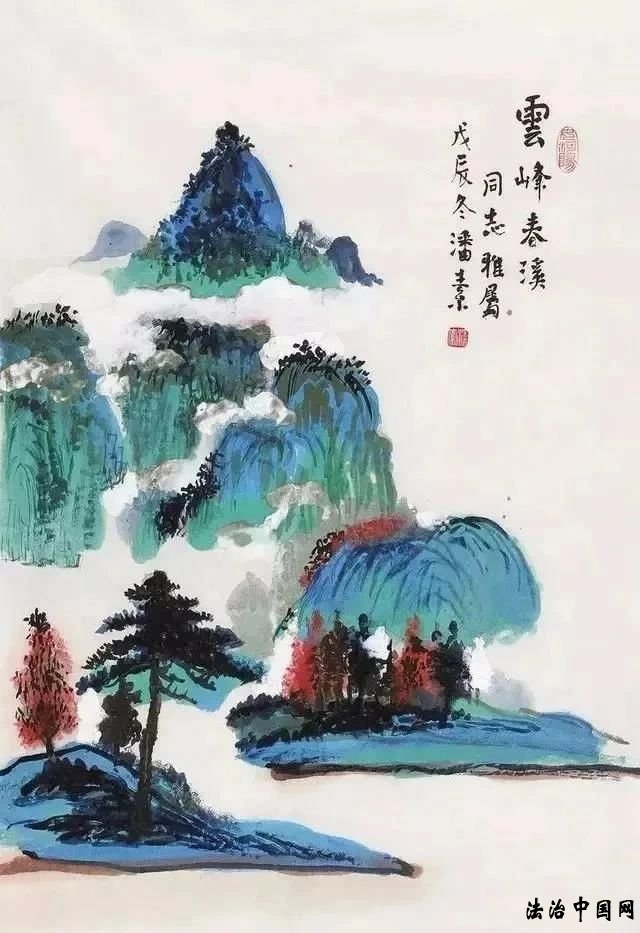 雲峰春溪
同志雅屬
戊辰冬潘素
法治中国网